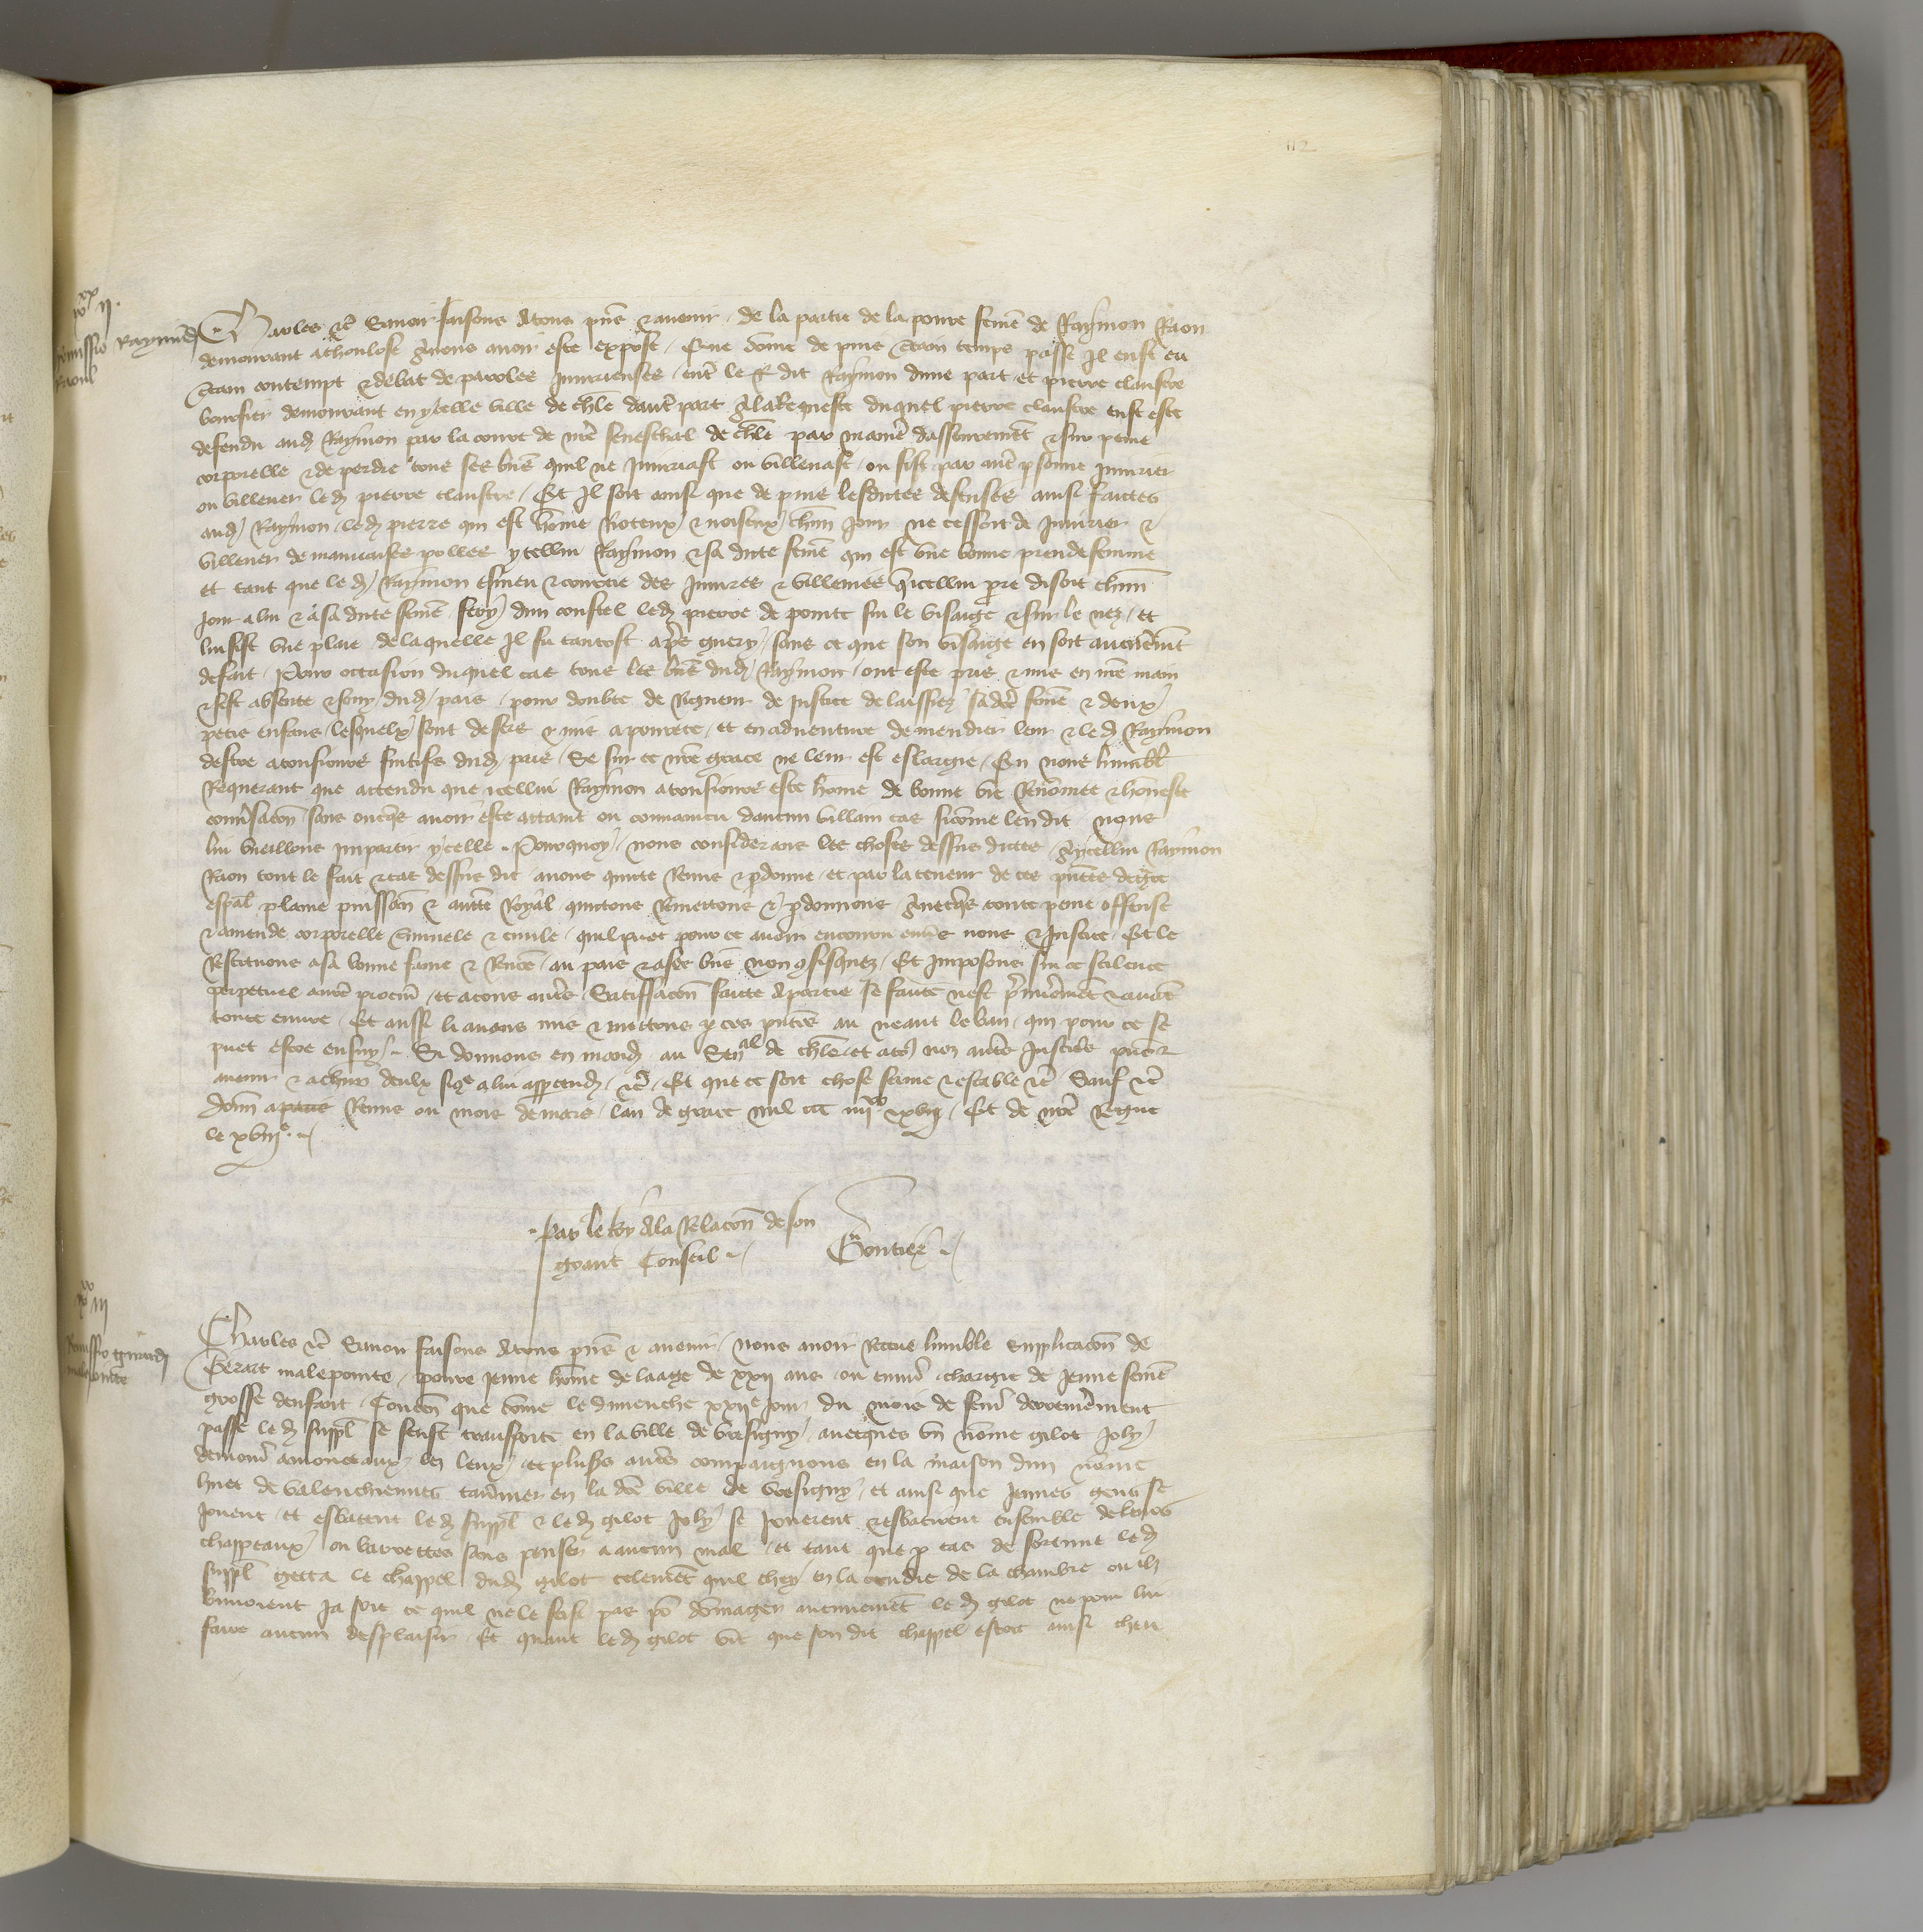 112
Charles etc. Savoir faisons a tous pns et avenir de la partie de la povre feme de Raymon Raon
demourant a Thoulose a nous avoir este expose Que come de pieca certain temps passe Il eust eu
certain contempt et debat de paroles Injurieuses entre le dit Raymon dune part et pierre claustre
boursier demourant en ycelle ville de thle dautre part a la Requeste duquel pierre claustre eust este
defendu aud Raymon par la court de nre seneschal de thle par maniere dasseurement et sur peine
corporelle et de perdre tous ses biens quil ne Injuriast ou villenast ou fist par autre psonne Injurier
ou villener led pierre claustre Et Il soit ainsi que depuis lesdittes defenses ainsi faittes
aud Raymon led pierre qui est home Rioteux et noiseux chun jour ne cessoit de Injurier et
villener de mauvaises parolles ycellui Raymon et sa ditte feme qui est une bonne preudefemme
et tant que led Raymon esmeu et courcie des Injures et villenies que icellui pre disoit chun
jour a lui et a sa ditte feme fery dun coustel led pierre de pointe sur le visaige et sur le nez et
lui fist une plaie de laquelle Il fu tantost apres guery sans ce que son visaige en soit aucunement
defait Pour occasion duquel cas tous les biens dud Raymon ont este pris et mis en nre main
et sest absente et fouy dud pais pour doubte de Rigueur de Justice delaissiez sa dce feme et deux
petis enfans lesquelx sont desers et mis a povrete et en adventure de mendier leur et led Raymon
destre a tousjours fuitifs dud pais Se sur ce nre grace ne leur est eslargie En nous humblement
Requerant que attendu que icellui Raymon a tousjours este home de bonne vie Renomee et honneste
conversacion sans oncques avoir este attaint ou convaincu daucun villain cas sicome len dit nous
lui vueillons Impartir ycelle Pourquoy nous considerans les choses dessus dittes a ycellui Raymon
Raon tout le fait et cas dessus dit avons quitte Remis et pdonne et par la teneur de ces pntes de grace
espal plaine puissance et autte Royal quittons Remettons et pdonnons avecques toute peine offense
et amende corporelle criminele et civile quil puet pour ce avoir encouru envers nous et Justice Et le
Restituons a sa bonne fame et Rnoe au pais et a ses biens non confisquez Et Imposons sur ce scilence
perpetuel a nre procur et a tous autres Satisfaccion faitte a partie se faitte nest premierement et avant
toute euvre Et aussi li avons mis et mettons par ces pntes au neant le ban qui pour ce se
puet estre ensuy Si donnons en mand au Senal de thle et a tous noz autres Justiciers pns et
avenir et a chun deulx sicome a lui appartend etc. Et que ce soit chose ferme et estable etc. Sauf etc.
Donn a paris Remis ou mois de mars lan de grace mil ccc iiiixx xvii Et de nre Regne
le xviiie
Par le Roy a la Relacion de son
grant Conseil Gontier
Charles etc. Savoir faisons a tous pns et avenir nous avoir Receue humble supplicacion de
Gerart malepointe povre jeune home de laage de xxii ans ou environ chargie de jeune feme
grosse denfant Contenant que come le dimenche xxiie jour du mois de fevr derrenierement
passe led suppl se feust transporte en la ville de Gresigny avecques un nome gilot joly
demour a moncraux lez leux et plusrs autres compaignons en la maison dun nome
huet de valenchiennes tavernier en la dce ville de Gresigny et ainsi que jeunes gens se
jouent et esbatent led suppl et led gilot joly se jouerent et esbatirent ensemble de leurs
chappeaux ou barrettes sans penser a aucun mal et tant que par cas de fortune led
suppl getta le chappel dud gilot telement quil chey en la cendre de la chambre ou ilz
buvoient ja soit ce quil ne le feist pas pour domagier aucunement led gilot ne pour lui
faire aucun desplaisir Et quant led gilot vit que son dit chappel estoit ainsi cheu